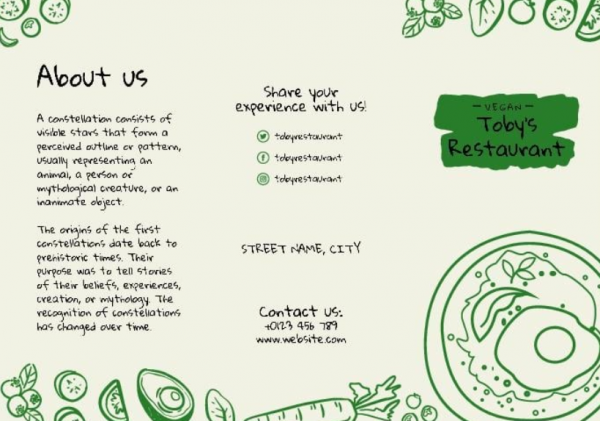 About us
A constellation consists of
visible stars that form a
perceived outline or pattern,
usually representing an
animal, a person or
mythological creature, or an
inanimate object.
The origins of the first
constellations date back to
prehistoric times. Their
purpose was to tell stories
of their beliefs, experiences,
creation, or mythology. The
recognition of constellations
has changed over time.
Share your
experience with us!
tobyrestaurant
tobyrestaurant
tobyrestaurant
STREET NAME, CITY
Contact us:
+0123 456 789
www.website.com
— VEGAN —
Toby's
Restaurant